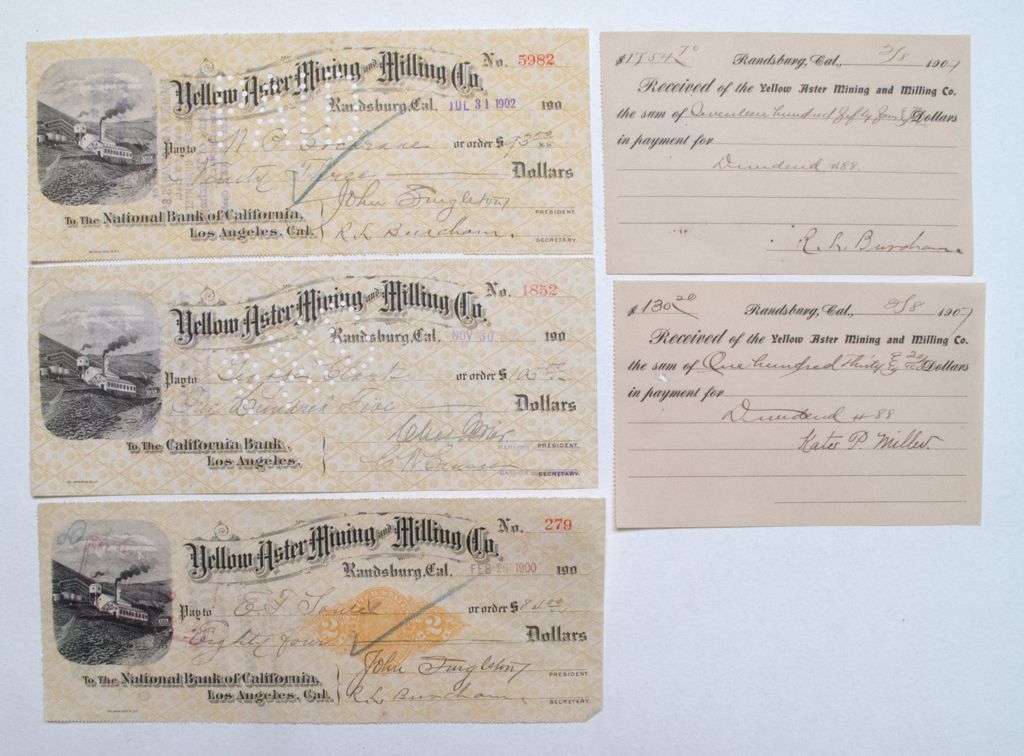 No. 5982
Yellow Aster Mining and Milling Co.
Randsburg, Cal. JUL 31 1902 190
Pay to or order $ 93 00/xx
Ninety Three Dollars
To The National Bank of California,
Los Angeles, Cal.
John Singleton PRESIDENT.
R. L. Burcham. SECRETARY.
No. 1852
Yellow Aster Mining and Milling Co.
Randsburg, Cal. NOV 30 190
Pay to Clark or order $ 105
One Hundred Five Dollars
To The California Bank,
Los Angeles.
PRESIDENT.
SECRETARY.
No. 279
Yellow Aster Mining and Milling Co.
Randsburg, Cal. FEB 1900 190
Pay to E. T. or order $ 84 00
Eighty four Dollars
2 2
To The National Bank of California,
Los Angeles, Cal.
John Singleton PRESIDENT.
R. L. Burcham SECRETARY.
$ 1754 70 Randsburg, Cal., 2/8 1907
Received of the Yellow Aster Mining and Milling Co.
the sum of Seventeen hundred fifty four & Dollars
in payment for
Dividend #88.
R. L. Burcham.
$ 130 20 Randsburg, Cal., 2/8 1907
Received of the Yellow Aster Mining and Milling Co.
the sum of One hundred Thirty & 20 Dollars
in payment for
Dividend #88
Kate P. Miller.